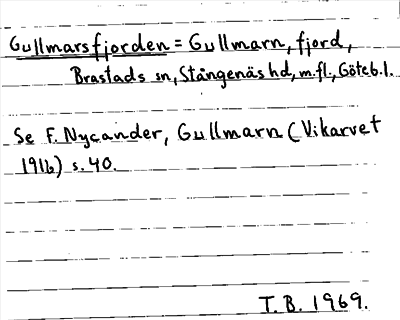 Gullmarsfjorden = Gullmarn, fjord,
Brastads sn, Stångenäs hd, m.fl., Göteb. l.
Se F. Nycander, Gullmarn (Vikarvet
1916) s. 40.
T. B. 1969.